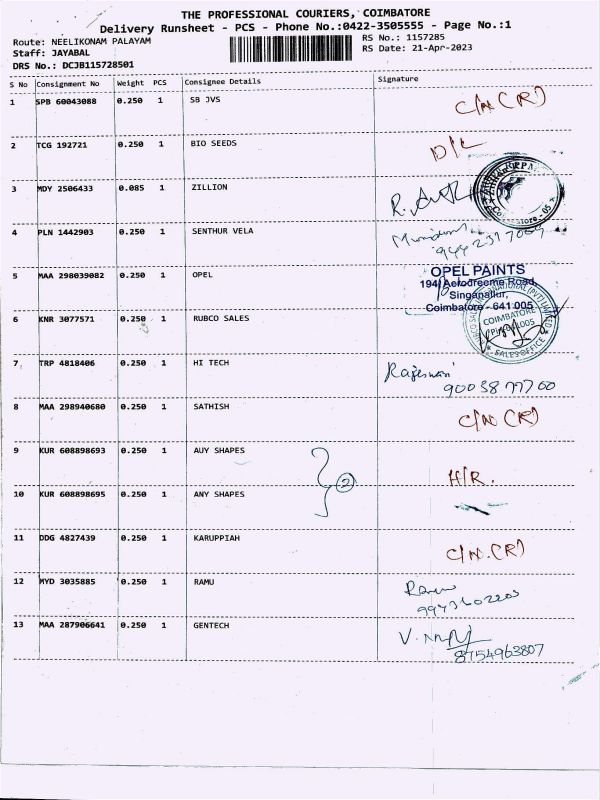 THE PROFESSIONAL COURIERS, COIMBATORE
Delivery Runsheet - PCS - Phone No.:0422-3505555 - Page No.:1
Route: NEELIKONAM PALAYAM RS No.: 1157285
Staff: JAYABAL RS Date: 21-Apr-2023
DRS No.: DCJB115728501
S No Consignment No Weight PCS Consignee Details Signature
1 SPB 60043088 0.250 1 SB JVS C/N (R)
2 TCG 192721 0.250 1 BIO SEEDS D/L
3 MDY 2506433 0.085 1 ZILLION R.
4 PLN 1442903 0.250 1 SENTHUR VELA
5 MAA 298039082 0.250 1 OPEL OPEL PAINTS
194, Aerodreeme Road,
Singanallur,
Coimbatore - 641 005
6 KNR 3077571 0.250 1 RUBCO SALES COIMBATORE
SALES OFFICE
7 TRP 4818406 0.250 1 HI TECH Rajeswari
8 MAA 298940680 0.250 1 SATHISH C/N (R)
9 KUR 608898693 0.250 1 AUY SHAPES H/R.
2
10 KUR 608898695 0.250 1 ANY SHAPES
11 DDG 4827439 0.250 1 KARUPPIAH C/N. (R)
12 MYD 3035885 0.250 1 RAMU
13 MAA 287906641 0.250 1 GENTECH V.
8754963807